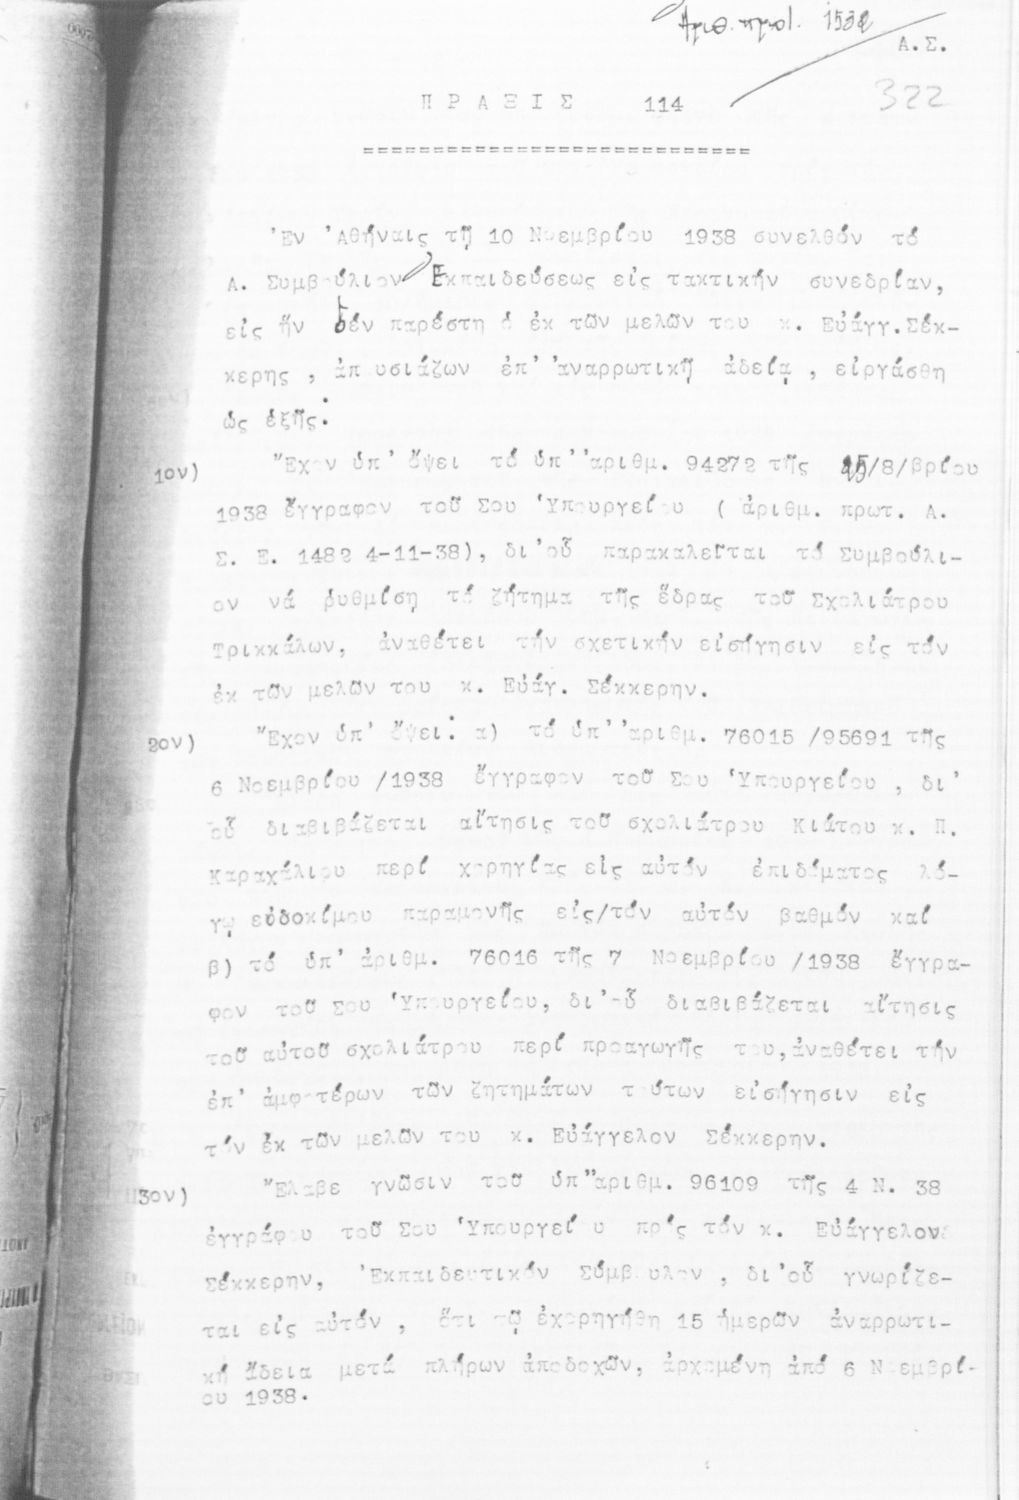 Αριθ. πρωτ. 1532
Α.Σ.
322
Π Ρ Α Ξ Ι Σ 114
============================
Ἐν Ἀθήναις τῇ 10 Νοεμβρίου 1938 συνελθόν τό
Α. Συμβούλιον Ἐκπαιδεύσεως εἰς τακτικήν συνεδρίαν,
εἰς ἥν δέν παρέστη ὁ ἐκ τῶν μελῶν του κ. Εὐάγγ.Σέκ-
κερης , ἀπουσιάζων ἐπ' ἀναρρωτικῇ ἀδείᾳ , εἰργάσθη
ὡς ἑξῆς:
1ον) Ἔχον ὑπ' ὄψει τό ὑπ' ἀριθμ. 94272 τῆς /8/βρίου
1938 ἔγγραφον τοῦ Σου Ὑπουργείου ( ἀριθμ. πρωτ. Α.
Σ. Ε. 1482 4-11-38), δι'οὗ παρακαλεῖται τό Συμβούλι-
ον νά ρυθμίσῃ τό ζήτημα τῆς ἕδρας τοῦ Σχολιάτρου
Τρικκάλων, ἀναθέτει τήν σχετικήν εἰσήγησιν εἰς τόν
ἐκ τῶν μελῶν του κ. Εὐάγ. Σέκκερην.
2ον) Ἔχον ὑπ' ὄψει: α) τό ὑπ' ἀριθμ. 76015 /95691 τῆς
6 Νοεμβρίου /1938 ἔγγραφον τοῦ Σου Ὑπουργείου , δι'
οὗ διαβιβάζεται αἴτησις τοῦ σχολιάτρου Κιάτου κ. Π.
Καραχάλιου περί χορηγίας εἰς αὐτόν ἐπιδόματος λό-
γῳ εὐδοκίμου παραμονῆς εἰς/τόν αὐτόν βαθμόν καί
β) τό ὑπ' ἀριθμ. 76016 τῆς 7 Νοεμβρίου /1938 ἔγγρα-
φον τοῦ Σου Ὑπουργείου, δι'οὗ διαβιβάζεται αἴτησις
τοῦ αὐτοῦ σχολιάτρου περί προαγωγῆς του,ἀναθέτει τήν
ἐπ' ἀμφοτέρων τῶν ζητημάτων τούτων εἰσήγησιν εἰς
τόν ἐκ τῶν μελῶν του κ. Εὐάγγελον Σέκκερην.
3ον) Ἔλαβε γνῶσιν τοῦ ὑπ' ἀριθμ. 96109 τῆς 4 Ν. 38
ἐγγράφου τοῦ Σου Ὑπουργείου πρός τόν κ. Εὐάγγελον
Σέκκερην, Ἐκπαιδευτικόν Σύμβουλον , δι'οὗ γνωρίζε-
ται εἰς αὐτόν , ὅτι τῷ ἐχορηγήθη 15 ἡμερῶν ἀναρρωτι-
κή ἄδεια μετά πλήρων ἀποδοχῶν, ἀρχομένη ἀπό 6 Νοεμβρί-
ου 1938.